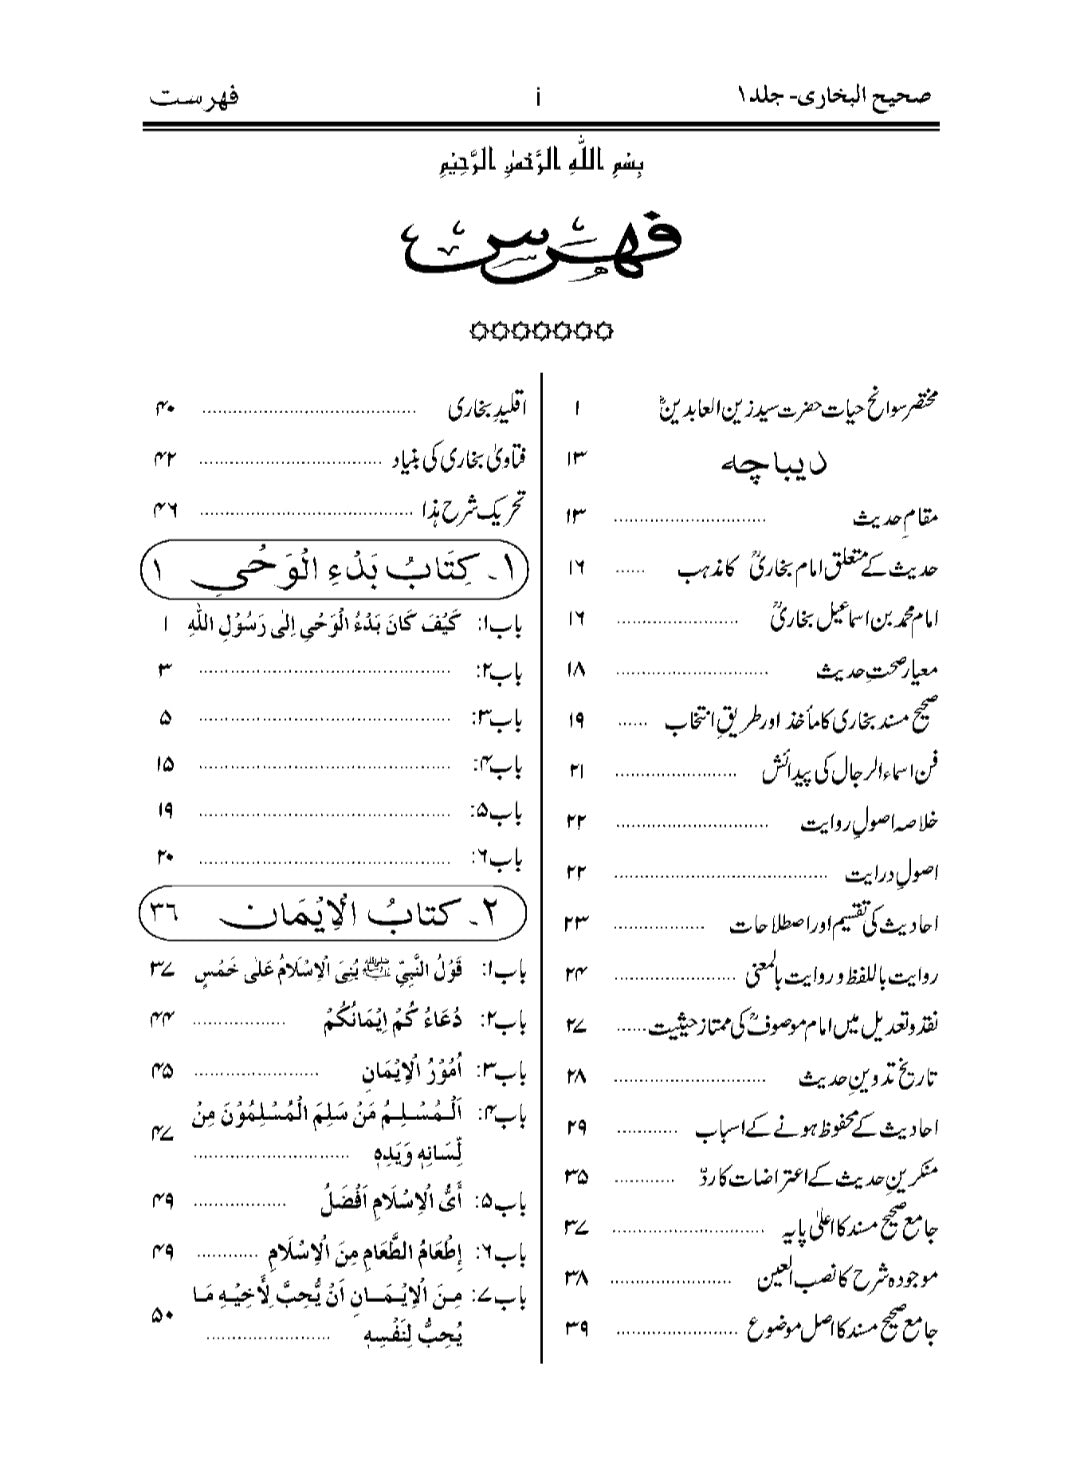 صحیح البخاری- جلد ۱ i فهرست
بِسْمِ اللهِ الرَّحْمٰنِ الرَّحِيْمِ
فهرس
مختصر سوانح حیات حضرت سید زین العابدینؓ ۱
دیباچہ ۱۳
مقامِ حدیث ............................. ۱۳
حدیث کے متعلق امام بخاریؒ کا مذہب ...... ۱۶
امام محمد بن اسماعیل بخاریؒ ....................... ۱۶
معیار صحتِ حدیث ............................. ۱۸
صحیح مسند بخاری کا مأخذ اور طریقِ انتخاب ...... ۱۹
فن اسماء الرجال کی پیدائش ....................... ۲۱
خلاصہ اصولِ روایت ............................. ۲۲
اصولِ درایت ......................................... ۲۲
احادیث کی تقسیم اور اصطلاحات ................. ۲۳
روایت باللفظ و روایت بالمعنی ....................... ۲۴
نقد و تعدیل میں امام موصوفؒ کی ممتاز حیثیت ...... ۲۷
تاریخ تدوینِ حدیث ............................. ۲۸
احادیث کے محفوظ ہونے کے اسباب ............ ۲۹
منکرینِ حدیث کے اعتراضات کا ردّ ............ ۳۵
جامع صحیح مسند کا اعلیٰ پایہ ............................. ۳۷
موجودہ شرح کا نصب العین ....................... ۳۸
جامع صحیح مسند کا اصل موضوع ....................... ۳۹
اقلیدِ بخاری ......................................... ۴۰
فتاویٰ بخاری کی بنیاد ................................... ۴۲
تحریک شرح ہذا ......................................... ۴۶
۱۔ كِتَابُ بَدْءِ الْوَحْيِ ۱
باب۱: كَيْفَ كَانَ بَدْءُ الْوَحْيِ اِلٰى رَسُوْلِ اللهِ ۱
باب۲: ................................................ ۳
باب۳: ................................................ ۵
باب۴: ................................................ ۱۵
باب۵: ................................................ ۱۹
باب۶: ................................................ ۲۰
۲۔ كتابُ الْاِيْمَان ۳۶
باب۱: قَوْلُ النَّبِيِّ ﷺ بُنِيَ الْاِسْلَامُ عَلٰى خَمْسٍ ۳۷
باب۲: دُعَاءُ كُمْ اِيْمَانُكُمْ .................. ۴۴
باب۳: اُمُوْرُ الْاِيْمَانِ ........................ ۴۵
باب۴: اَلْمُسْلِمُ مَنْ سَلِمَ الْمُسْلِمُوْنَ مِنْ
لِّسَانِهٖ وَيَدِهٖ .............................. ۴۷
باب۵: أَيُّ الْاِسْلَامِ اَفْضَلُ .................. ۴۹
باب۶: اِطْعَامُ الطَّعَامِ مِنَ الْاِسْلَامِ ............ ۴۹
باب۷: مِنَ الْاِيْمَانِ اَنْ يُّحِبَّ لِأَخِيْهِ مَا
يُحِبُّ لِنَفْسِهٖ ........................ ۵۰